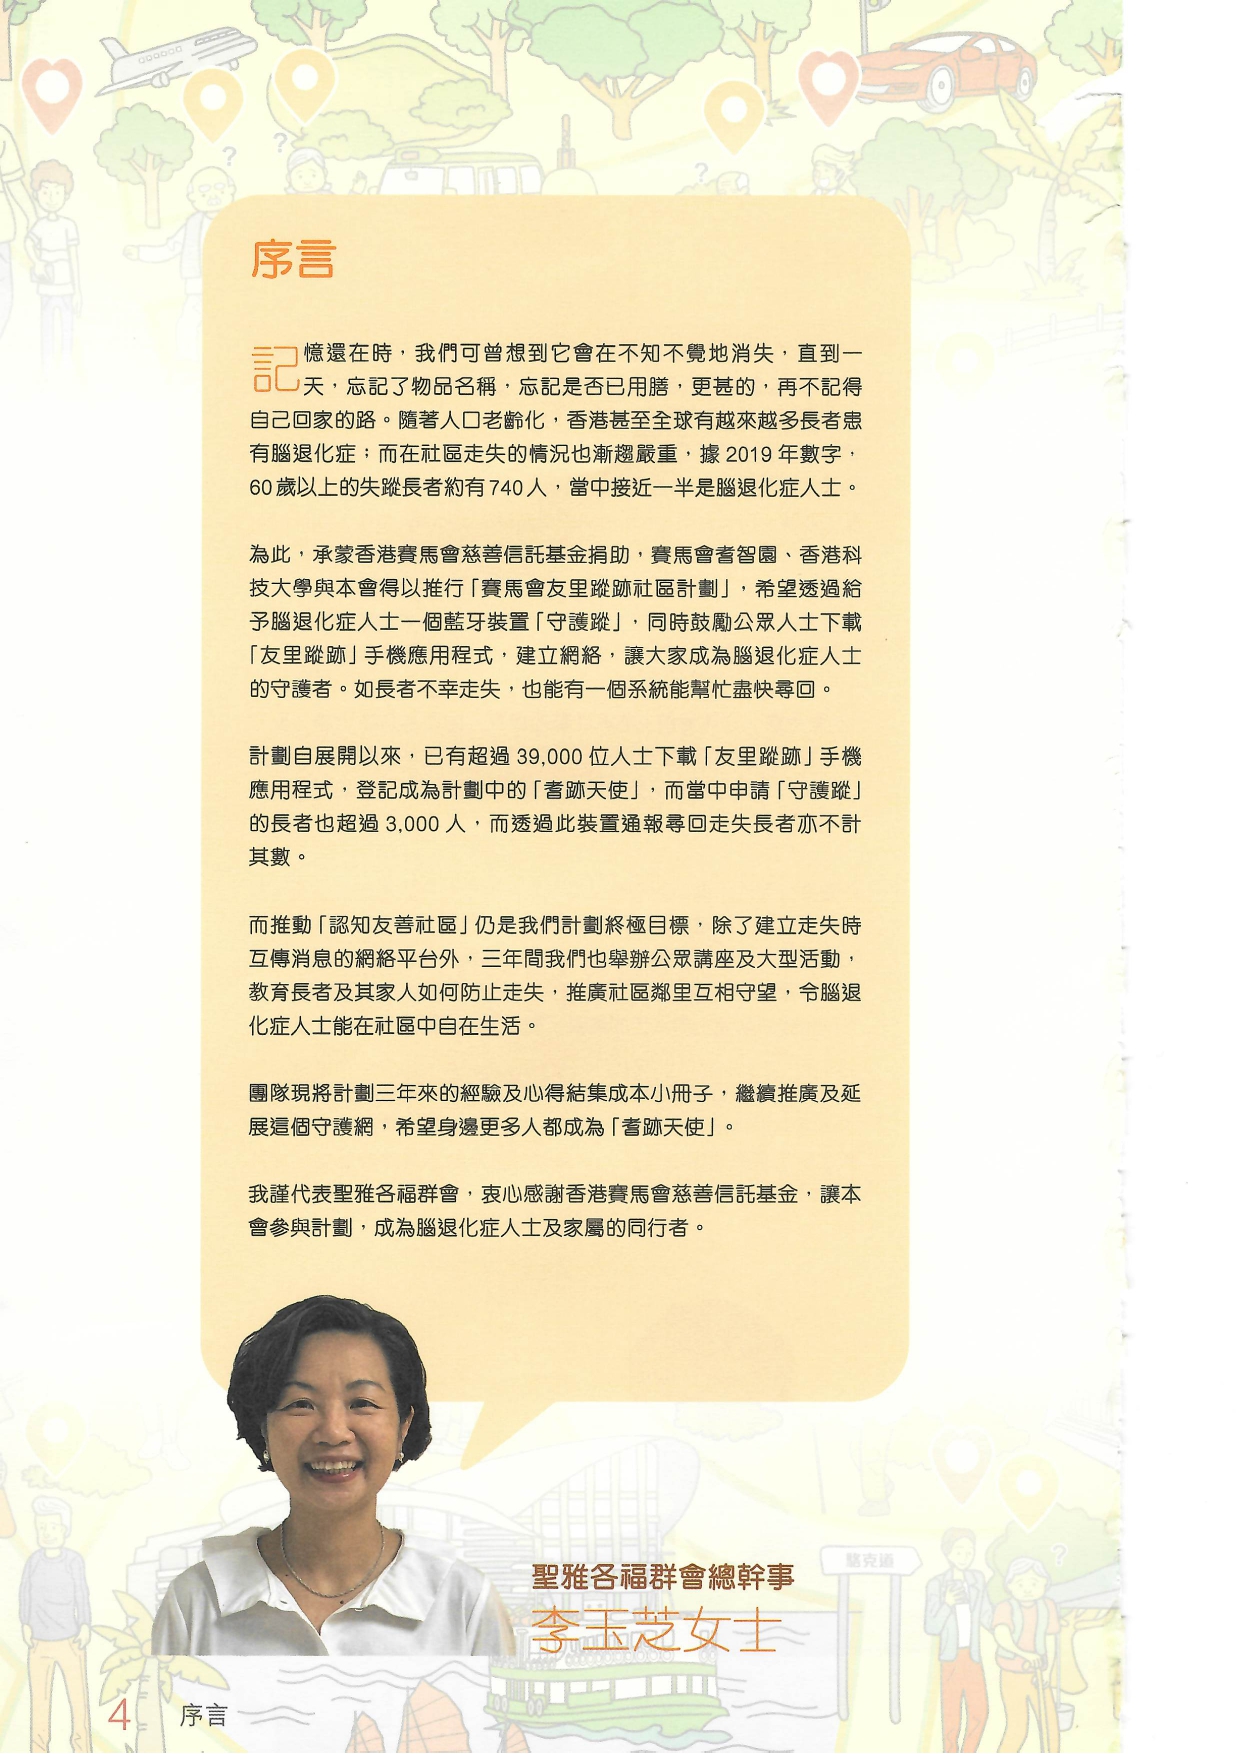 序言
記憶還在時，我們可曾想到它會在不知不覺地消失，直到一
天，忘記了物品名稱，忘記是否已用膳，更甚的，再不記得
自己回家的路。隨著人口老齡化，香港甚至全球有越來越多長者患
有腦退化症；而在社區走失的情況也漸趨嚴重，據 2019 年數字，
60 歲以上的失蹤長者約有 740 人，當中接近一半是腦退化症人士。
為此，承蒙香港賽馬會慈善信託基金捐助，賽馬會耆智園、香港科
技大學與本會得以推行「賽馬會友里蹤跡社區計劃」，希望透過給
予腦退化症人士一個藍牙裝置「守護蹤」，同時鼓勵公眾人士下載
「友里蹤跡」手機應用程式，建立網絡，讓大家成為腦退化症人士
的守護者。如長者不幸走失，也能有一個系統能幫忙盡快尋回。
計劃自展開以來，已有超過 39,000 位人士下載「友里蹤跡」手機
應用程式，登記成為計劃中的「耆跡天使」，而當中申請「守護蹤」
的長者也超過 3,000 人，而透過此裝置通報尋回走失長者亦不計
其數。
而推動「認知友善社區」仍是我們計劃終極目標，除了建立走失時
互傳消息的網絡平台外，三年間我們也舉辦公眾講座及大型活動，
教育長者及其家人如何防止走失，推廣社區鄰里互相守望，令腦退
化症人士能在社區中自在生活。
團隊現將計劃三年來的經驗及心得結集成本小冊子，繼續推廣及延
展這個守護網，希望身邊更多人都成為「耆跡天使」。
我謹代表聖雅各福群會，衷心感謝香港賽馬會慈善信託基金，讓本
會參與計劃，成為腦退化症人士及家屬的同行者。
駱克道
聖雅各福群會總幹事
李玉芝女士
4 序言